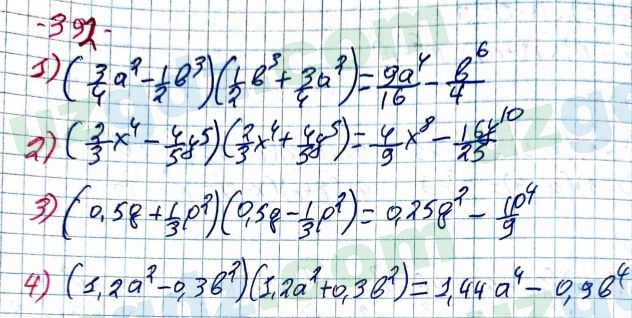 -392-
1) (3/4 a² - 1/2 b³)(1/2 b³ + 3/4 a²) = 9a⁴/16 - b⁶/4
2) (2/3 x⁴ - 4/5 y⁵)(2/3 x⁴ + 4/5 y⁵) = 4/9 x⁸ - 16y¹⁰/25
3) (0,5q + 1/3 p²)(0,5q - 1/3 p²) = 0,25q² - p⁴/9
4) (1,2a² - 0,3b²)(1,2a² + 0,3b²) = 1,44a⁴ - 0,9b⁴